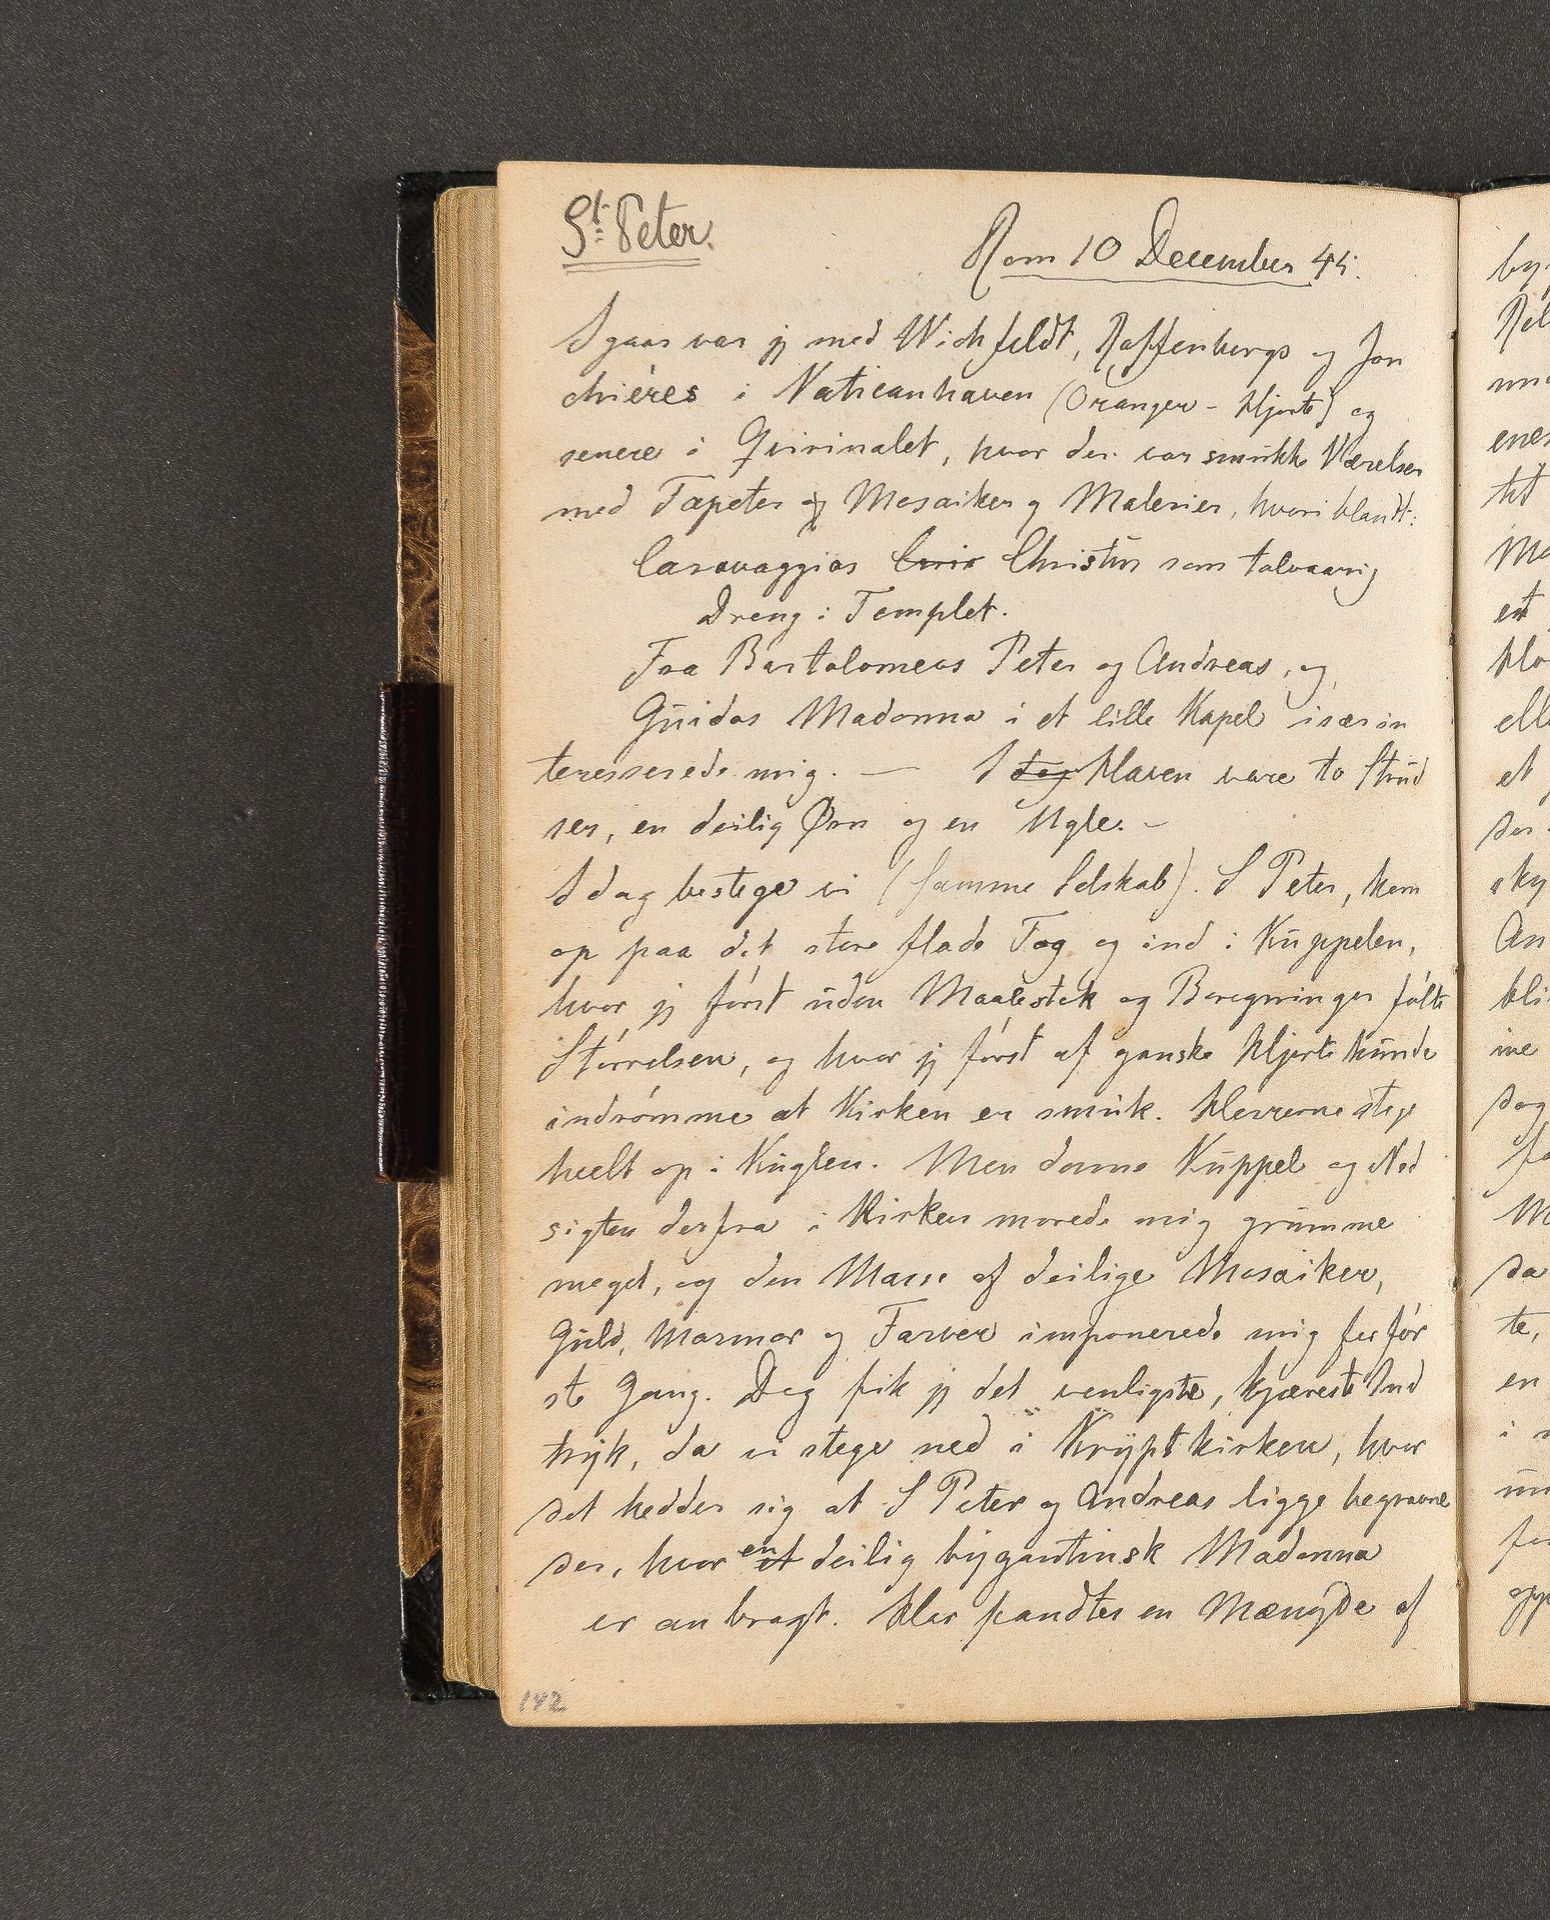 St. Peter.
Rom 10 December 45.
I gaar var jg med Wichfeldt, Raffenbergs og Jon
chiéres i Vaticanhaven (Oranger - Hjorte) og
senere i Qvirinalet, hvor der var smukke Værelser
med Tapeter og Mosaiker og Malerier, hvoriblandt:
Caravaggios Christus som tolvaarig
Dreng i Templet.
Fra Bartolomeos Peter og Andreas, og
Guidos Madonna i et lille Kapel især in
teresserede mig. — I dag Haven vare to Stud
ser, en deilig Ørn og en Ugle. –
I dag bestege vi (samme Selskab). S Peter, kom
op paa det store flade Tag og ind i Kuppelen,
hvor jg først uden Maalestok og Beregninger følte
Størrelsen, og hvor jg først af ganske Hjerte kunde
indrømme at Kirken er smuk. Herrerne stege
heelt op i Kuglen. Men denne Kuppel og Ned
sigten derfra i Kirken morede mig grumme
meget, og den Masse af deilige Mosaiker,
Guld, Marmor og Farver imponerede mig for før
ste Gang. Dog fik jg det venligste, kjæreste Ind
tryk, da vi stege ned i Kryptkirken, hvor
det hedder sig at S Peter og Andreas ligge begravne
der, hvor en et deilig bygantinsk Madonna
er anbragt. Her fandtes en Mængde af
142